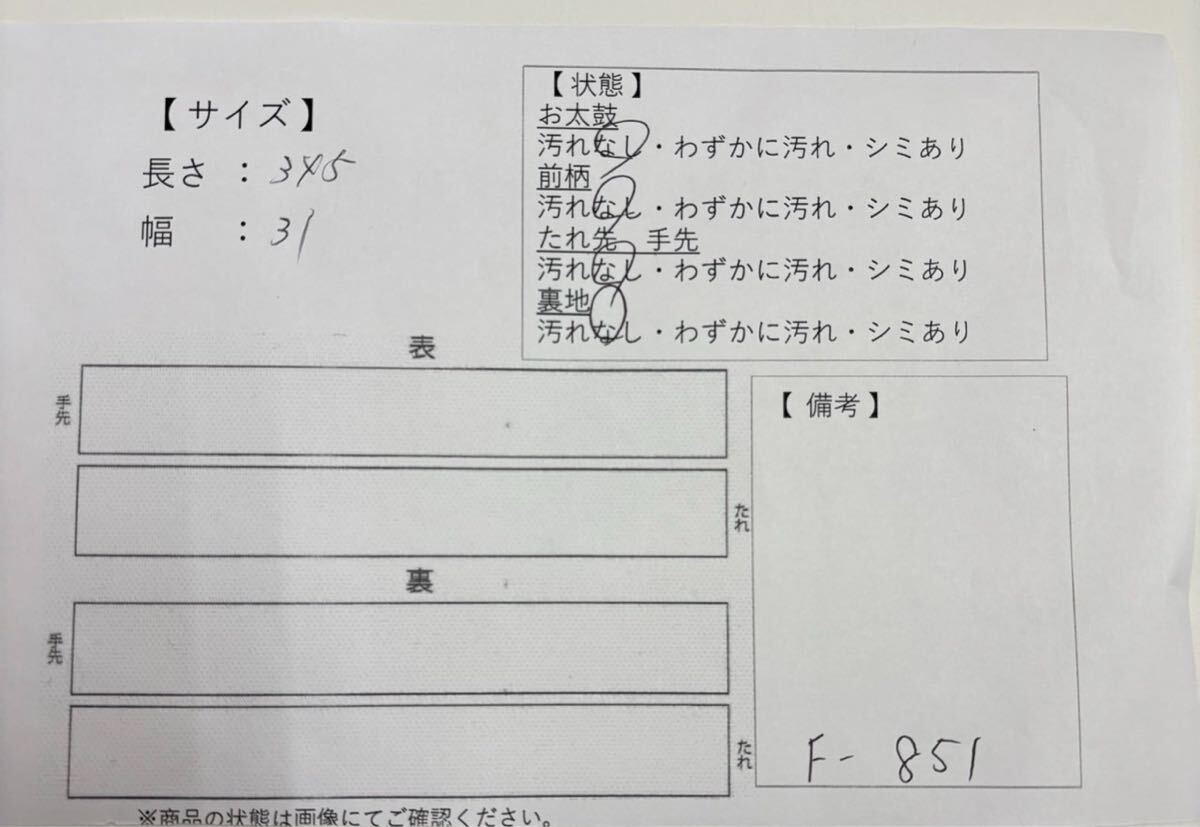 【 サイズ 】
長さ ： 345
幅 ： 31
【 状態 】
お太鼓
汚れなし・わずかに汚れ・シミあり
前柄
汚れなし・わずかに汚れ・シミあり
たれ先 手先
汚れなし・わずかに汚れ・シミあり
裏地
汚れなし・わずかに汚れ・シミあり
表
手先
たれ
裏
手先
たれ
【 備考 】
F- 851
※商品の状態は画像にてご確認ください。